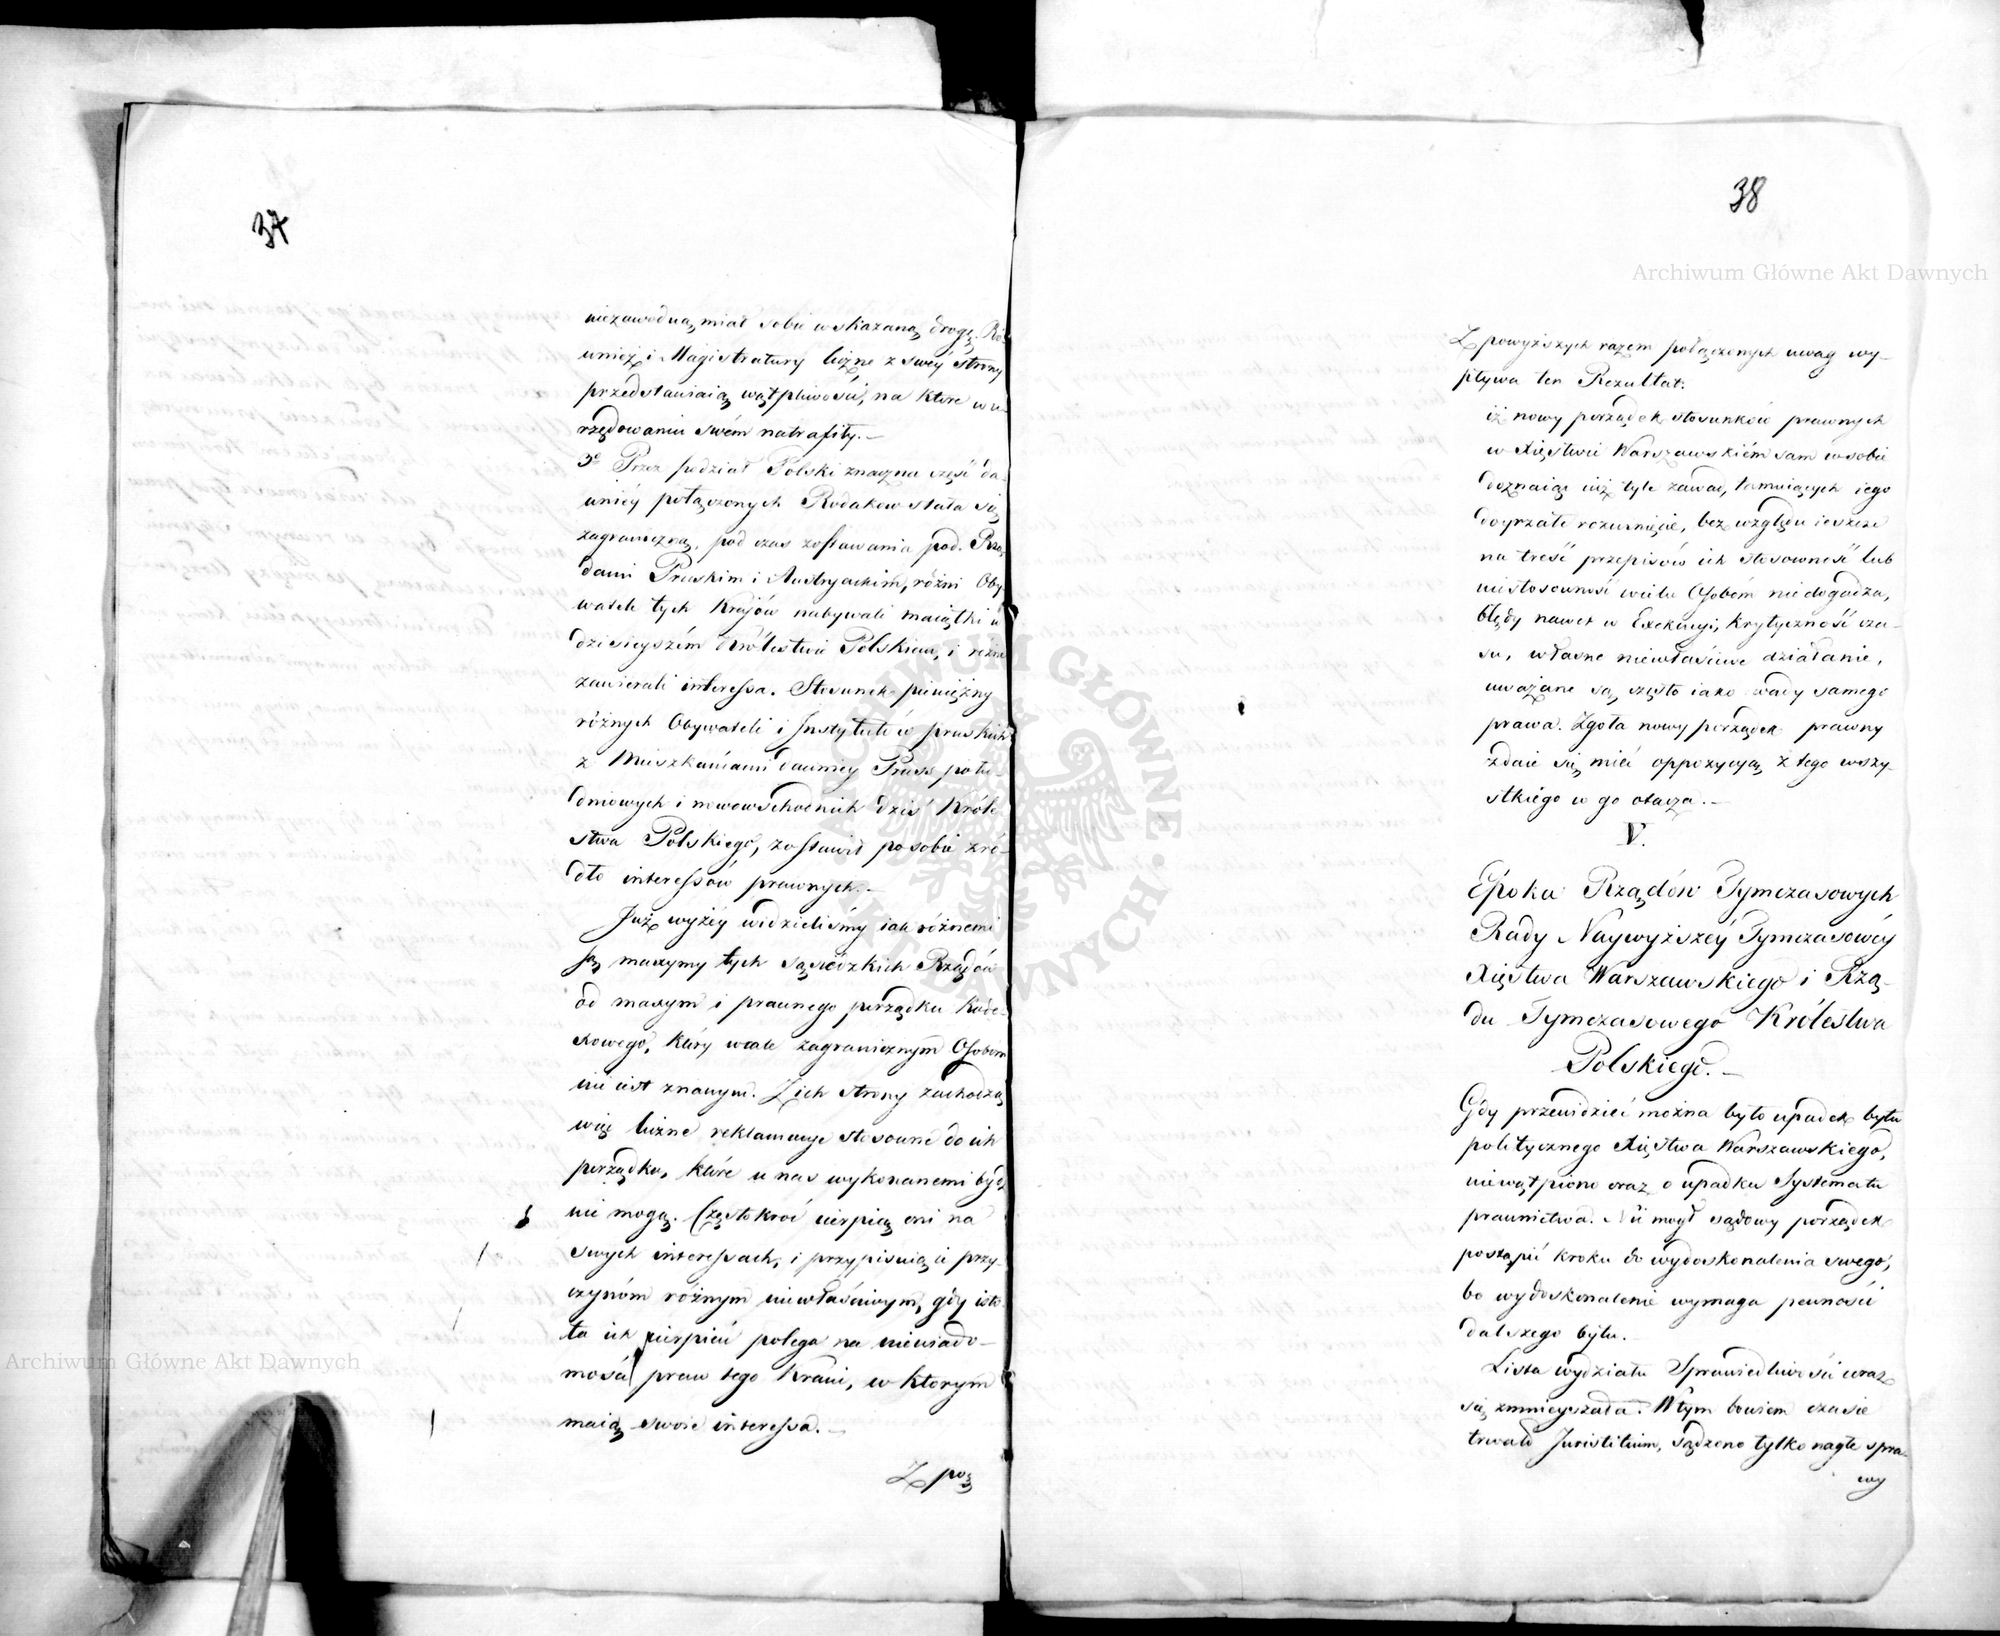 37
niezawodną miał sobie wskazaną drogę. Ró-
wnież i Magistratury liczne z swéy strony
przedstawiaią wątpliwości, na które w u-
rzędowaniu swém natrafiły. —
3º Przez podział Polski znaczna część da-
wniéy połączonych Rodaków stała się
zagraniczną, pod czas zostawania pod Rzą-
dami Pruskim i Austryackim, różni Oby-
watele tych Krajów nabywali maiątki w
dzisieyszém Królestwie Polskiem, i różne
zawierali interessa. Stosunek pieniężny
różnych Obywateli i Instytutów pruskich
z Mieszkańcami dawniéy Pruss połu-
dniowych i nowowschodnich dziś Króle-
stwa Polskiego, zostawił po sobie źró-
dło interessów prawnych. —
Już wyżéy widzieliśmy iak różnemi
są maxymy tych sąsiedzkich Rządów
od maxym i prawnego porządku Kode-
xowego, który wcale zagranicznym Osobom
nie iest znanym. Z ich strony zachodzą
więc liczne reklamacye stosowne do ich
porządku, które u nas wykonanemi być
nie mogą. Częstokroć cierpią oni na
swych interessach, i przypisuią ie przy-
czynóm różnym niewłaściwym, gdy isto-
ta ich cierpień polega na niewiado-
mości praw tego Kraiu, w którym
maią swoie interessa. —
Z po-
38
Z powyższych razem połączonych uwag wy-
pływa ten Rezultat:
iż nowy porządek stosunków prawnych
w Xięstwie Warszawskiém sam w sobie
doznaiąc iuż tyle zawad, tamuiących iego
doyrzałe rozwinięcie, bez względu ieszcze
na treść przepisów ich stosowność lub
niestosowność wielu Osobom niedogadza,
błędy nawet w Exekucyi, krytyczność cza-
su, własne niewłaściwe działanie,
uważane są często iako wady samego
prawa. Zgoła nowy porządek prawny
zdaie się mieć oppozycyą z tego wszy-
stkiego co go otacza. —
V.
Epoka Rządów Tymczasowych
Rady Naywyższéy Tymczasowéy
Xięstwa Warszawskiego i Rzą-
du Tymczasowego Królestwa
Polskiego. —
Gdy przewidzieć można było upadek bytu
politycznego Xięstwa Warszawskiego,
niewątpiono oraz o upadku Systematu
prawnictwa. Nie mógł sądowy porządek
postąpić kroku do wydoskonalenia swego,
bo wydoskonalenie wymaga pewności
dalszego bytu.
Lista wydziału Sprawiedliwości coraz
się zmnieyszała. W tym bowiem czasie
trwało Juristitium, sądzono tylko nagłe spra-
wy
Archiwum Główne Akt Dawnych
Archiwum Główne Akt Dawnych
ARCHIWUM GŁÓWNE · AKT DAWNYCH ·